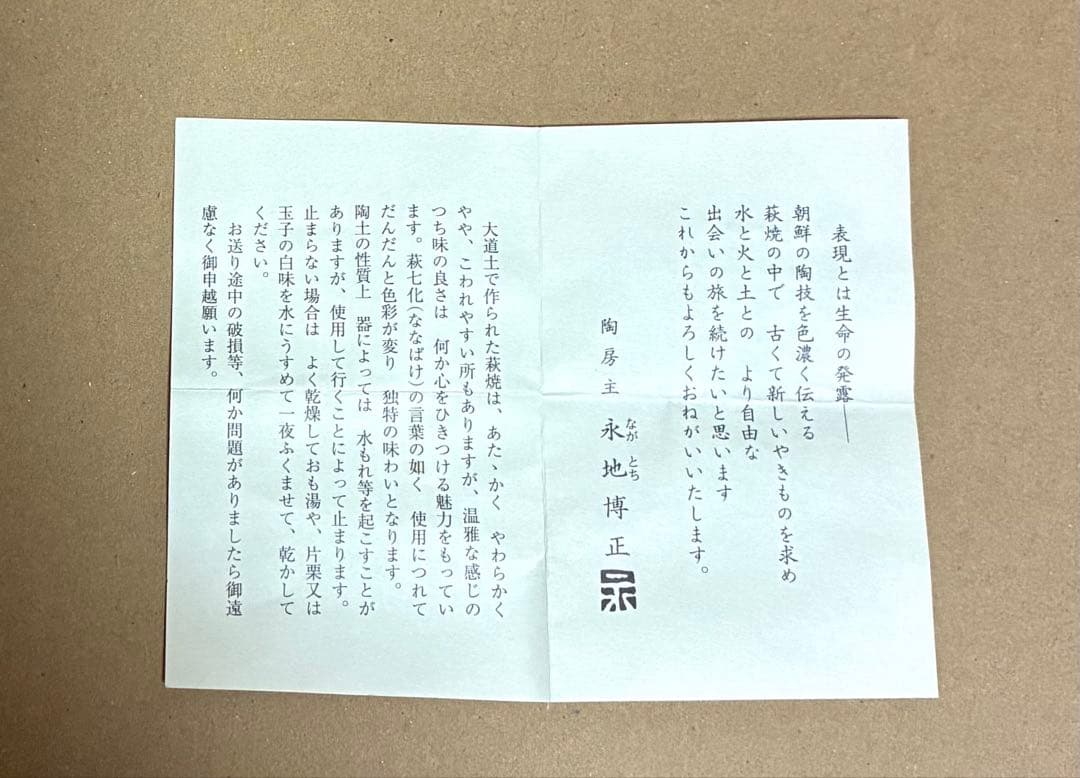 表現とは生命の発露——
朝鮮の陶技を色濃く伝える
萩焼の中で　古くて新しいやきものを求め
水と火と土との　より自由な
出会いの旅を続けたいと思います
これからもよろしくおねがいいたします。
陶房主　永地博正
なが　とち
大道土で作られた萩焼は、あたゝかく　やわらかく
やや、こわれやすい所もありますが、温雅な感じの
つち味の良さは　何か心をひきつける魅力をもってい
ます。萩七化（ななばけ）の言葉の如く　使用につれて
だんだんと色彩が変り　独特の味わいとなります。
陶土の性質上　器によっては　水もれ等を起こすことが
ありますが、使用して行くことによって止まります。
止まらない場合は　よく乾燥しておも湯や、片栗又は
玉子の白味を水にうすめて一夜ふくませて、乾かして
ください。
お送り途中の破損等、何か問題がありましたら御遠
慮なく御申越願います。